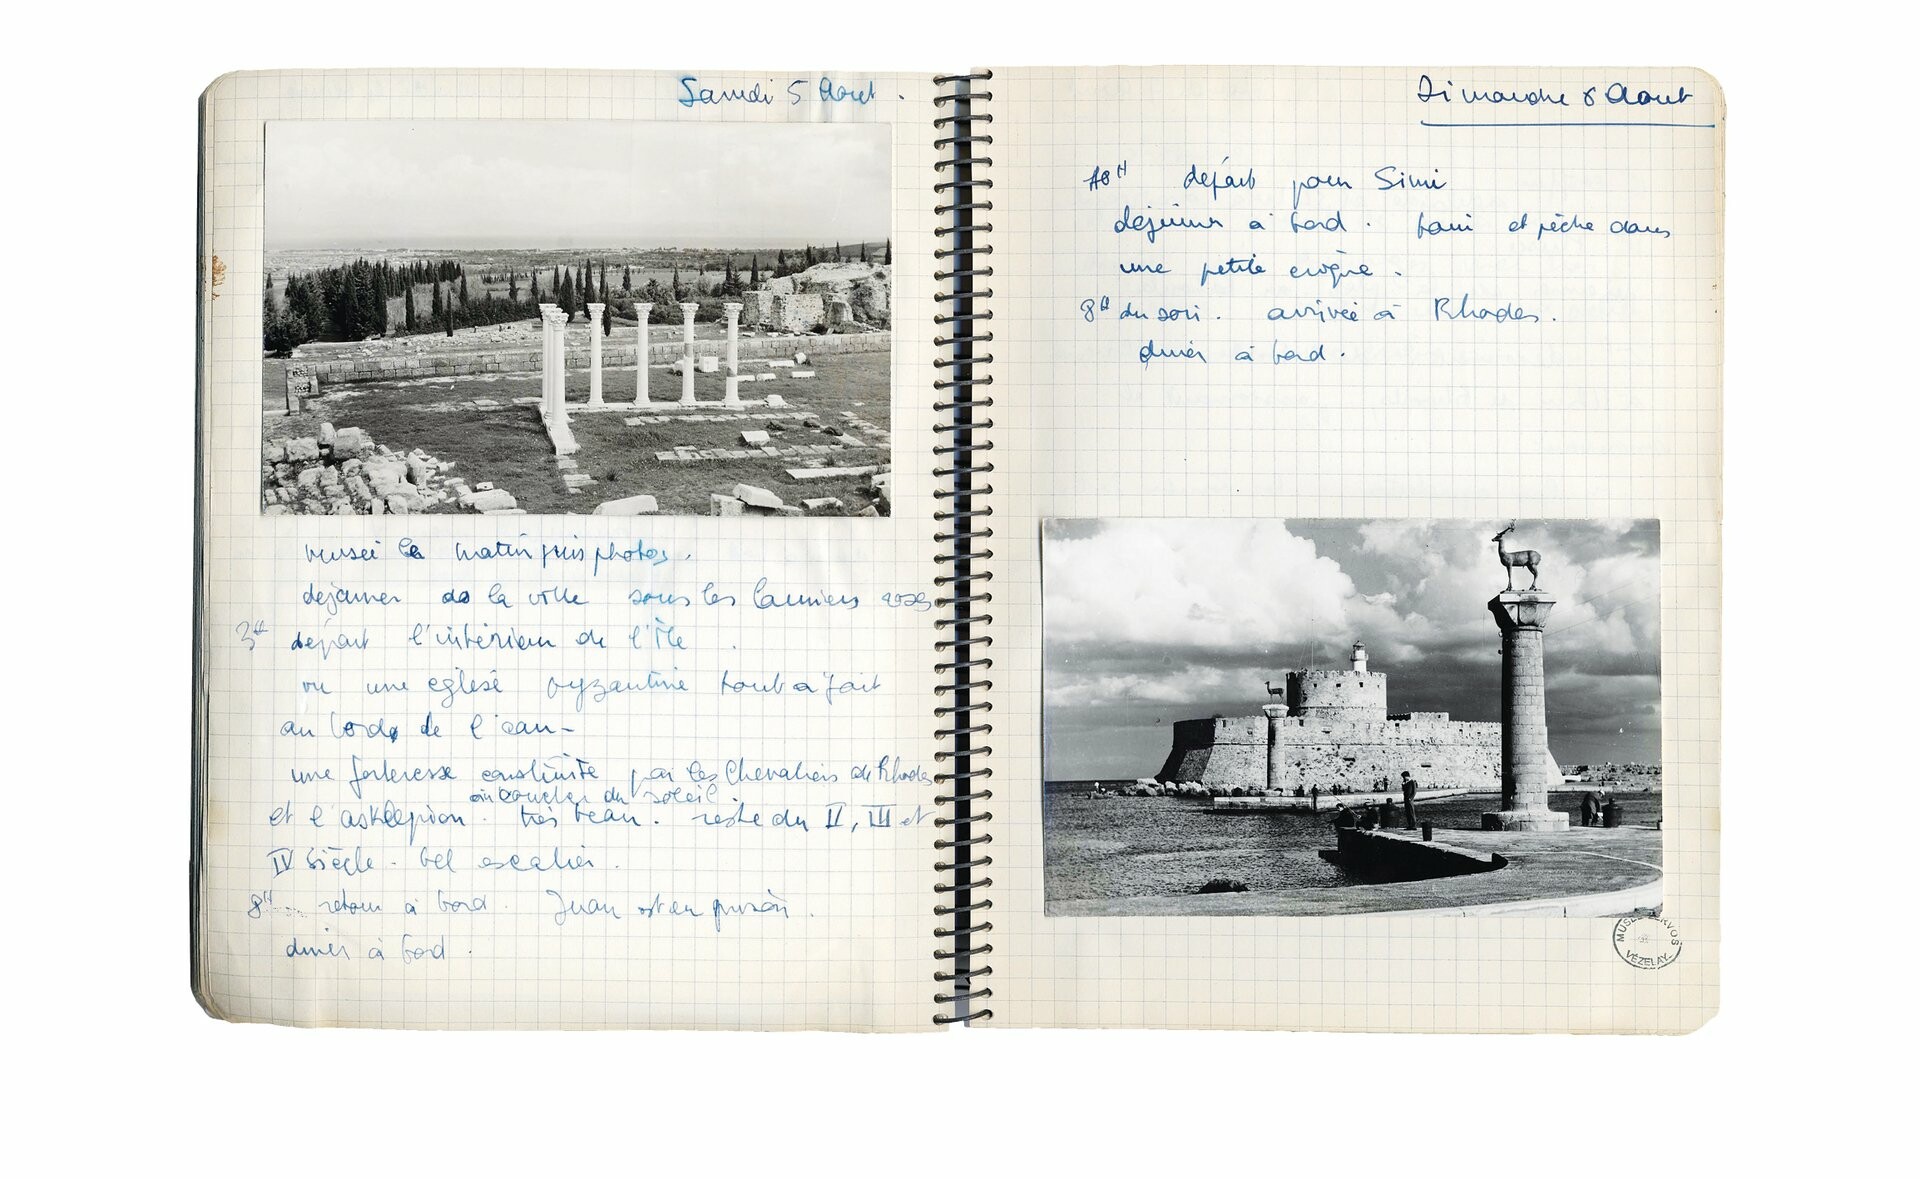 Samedi 5 Août.
musée le matin puis photos.
déjeuner de la ville sous les lauriers roses
3H départ l'intérieur de l'île.
vu une eglise byzantine tout a fait
au bord de l'eau-
une forteresse construite par les Chevaliers de Rhodes
au coucher du soleil
et l'asklépion. très beau. reste du II, III et
IV siècle. bel escalier.
8H retour à bord. Juan est en prison.
diner à bord.
Dimanche 6 Aout
10H départ pour Simi
déjeuner à bord. bain et pêche dans
une petite crique.
8H du soir. arrivée à Rhodes.
diner à bord.
MUSÉE ZERVOS
VÉZELAY